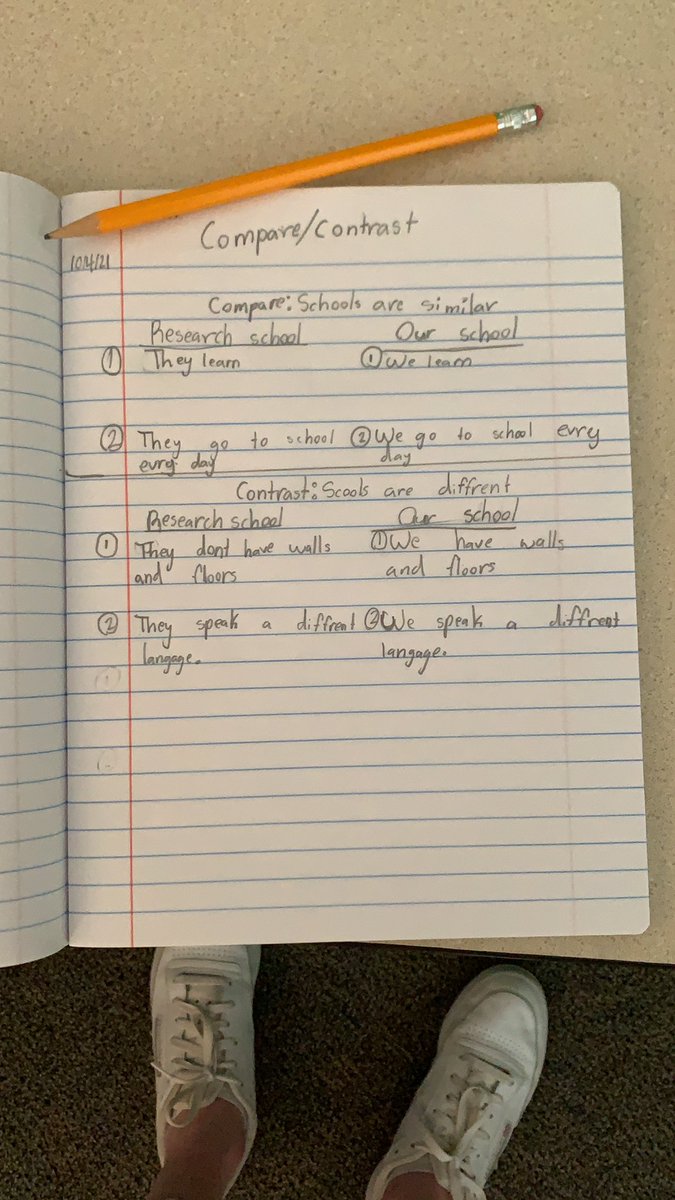 Compare/Contrast
10/4/21
Compare: Schools are similar
Research school Our school
① They learn ① We learn
② They go to school ② We go to school evry
evry day day
Contrast: Scools are diffrent
Research school Our school
① They dont have walls ① We have walls
and floors and floors
② They speak a diffrent ② We speak a diffrent
langage. langage.